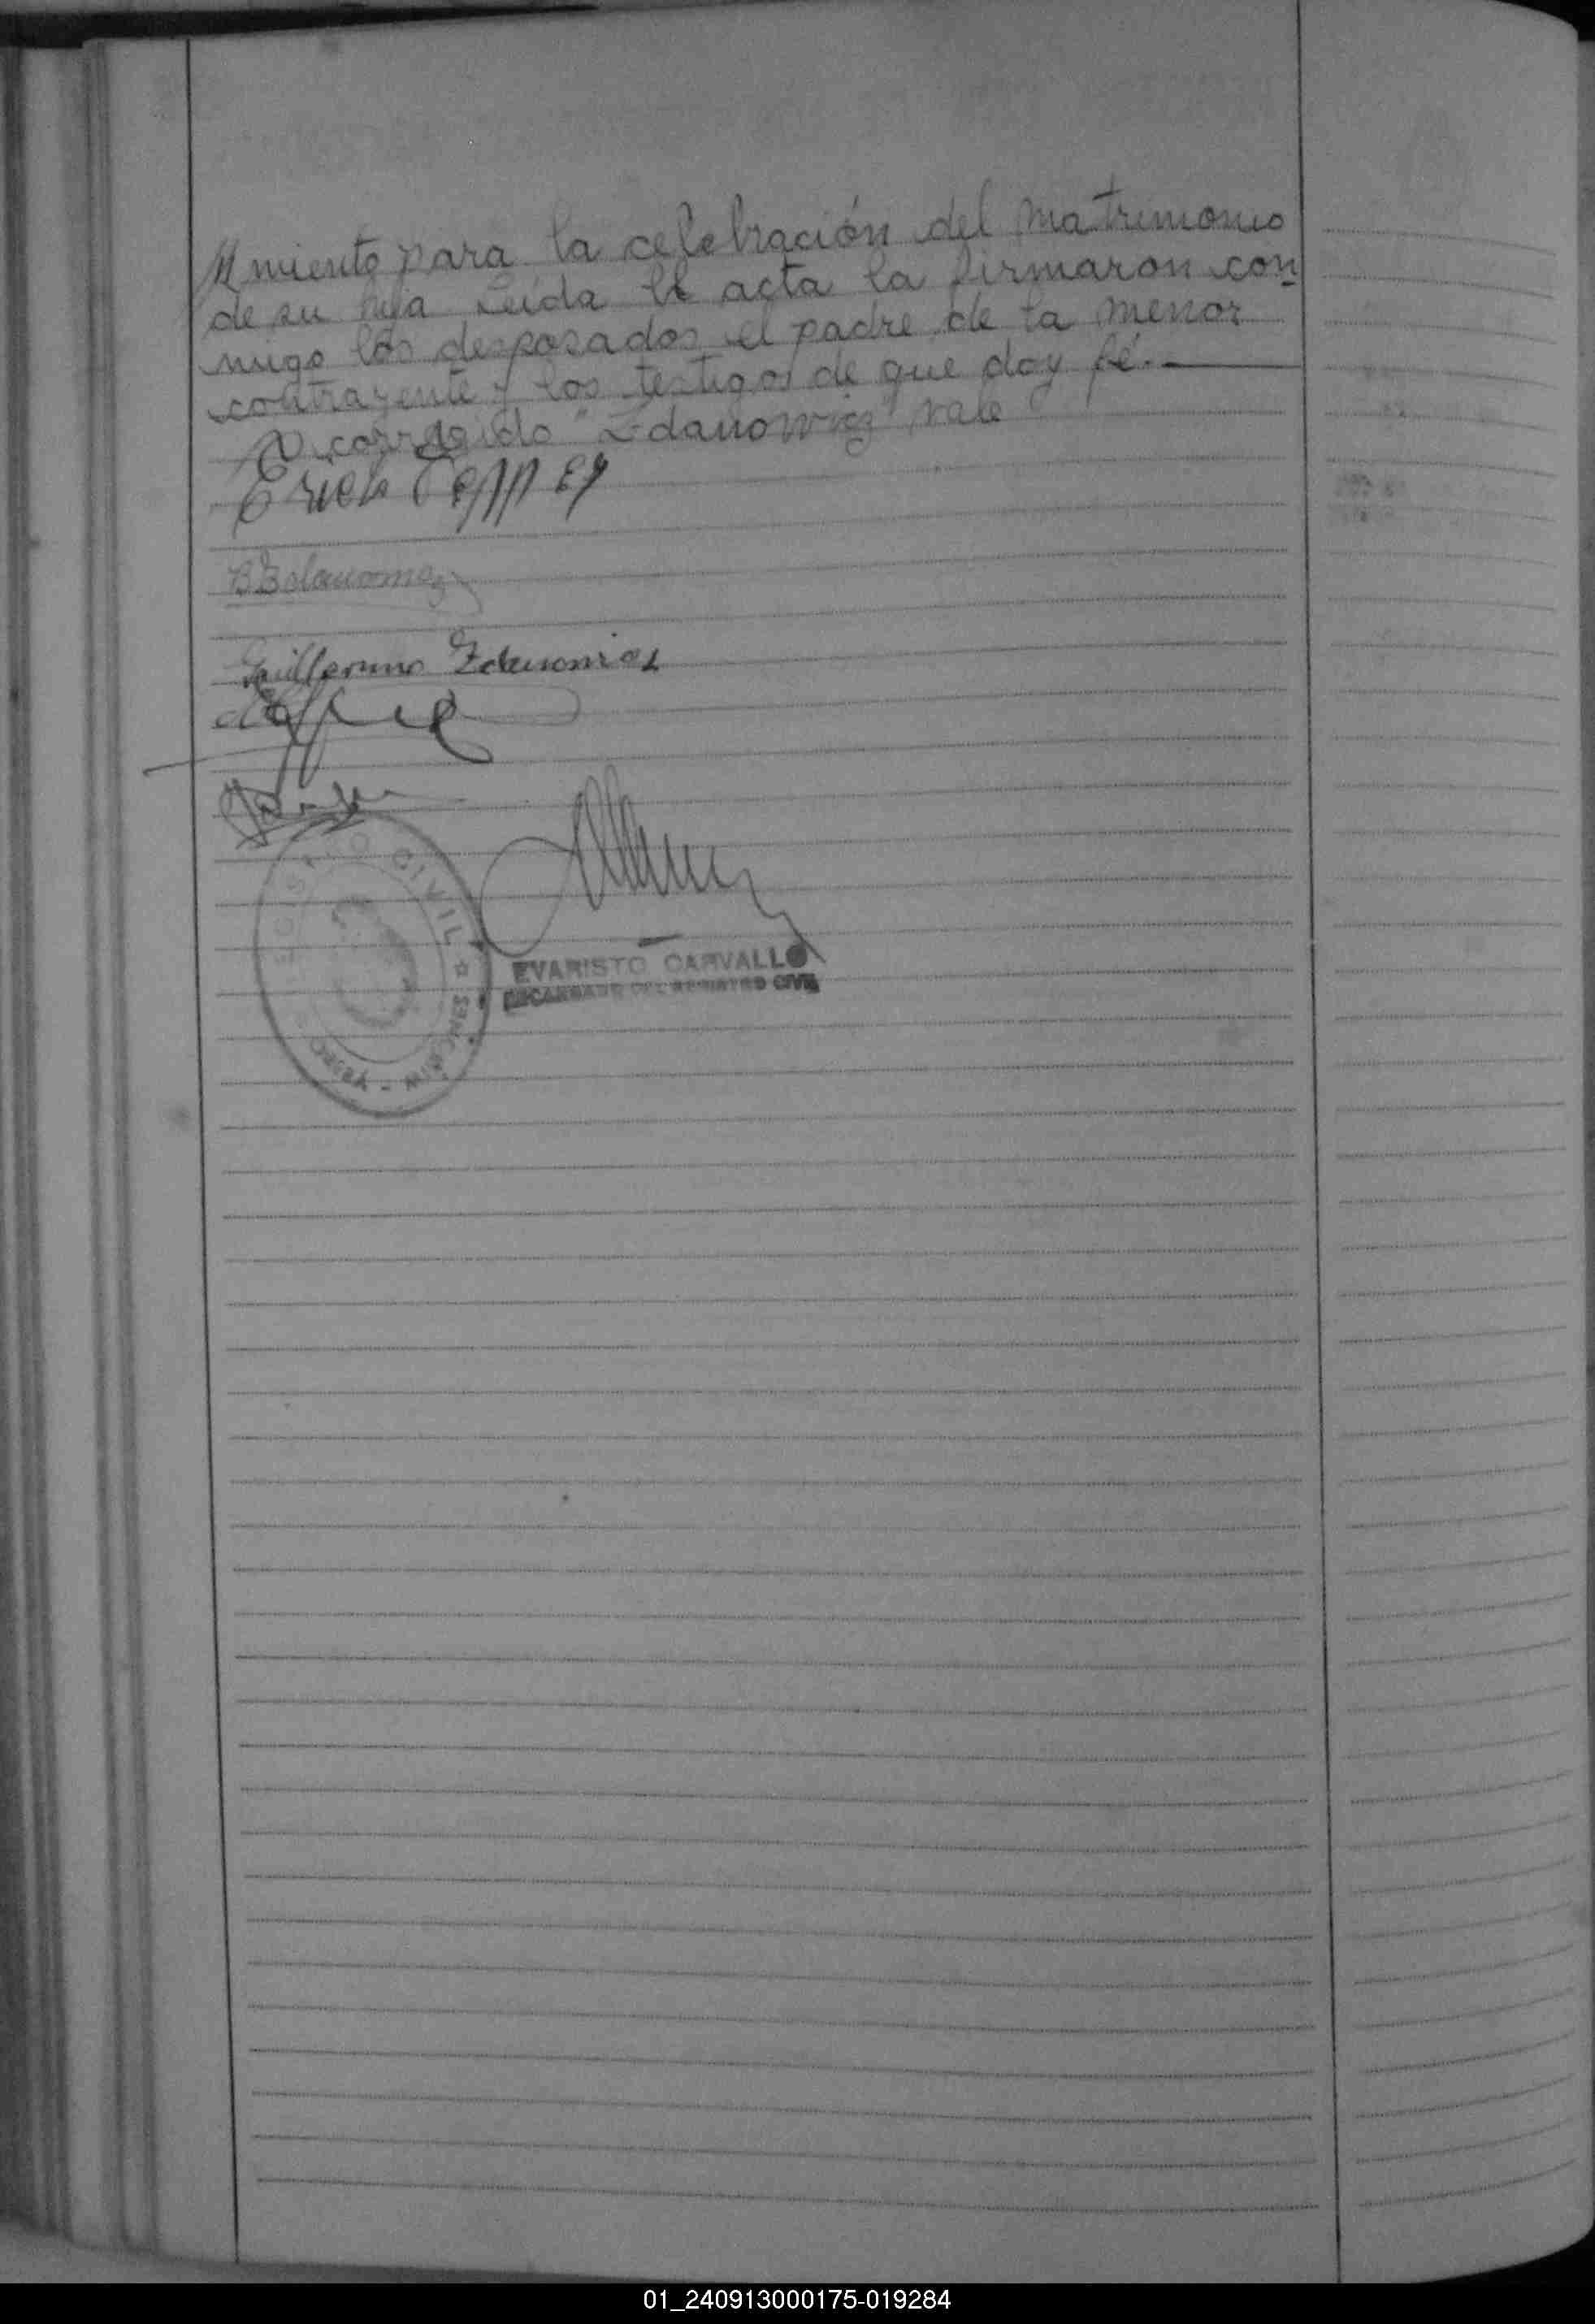 miento para la celebración del matrimonio
de su hija Leida el acta la firmaron con
migo los desposados el padre de la menor
contrayente y los testigos de que doy fé.
corregido "Zdanowicz" vale
Erich
Guillermo Zdanowicz
REGISTRO CIVIL
EVARISTO CARVALLO
ENCARGADO DEL REGISTRO CIVIL
01_240913000175-019284